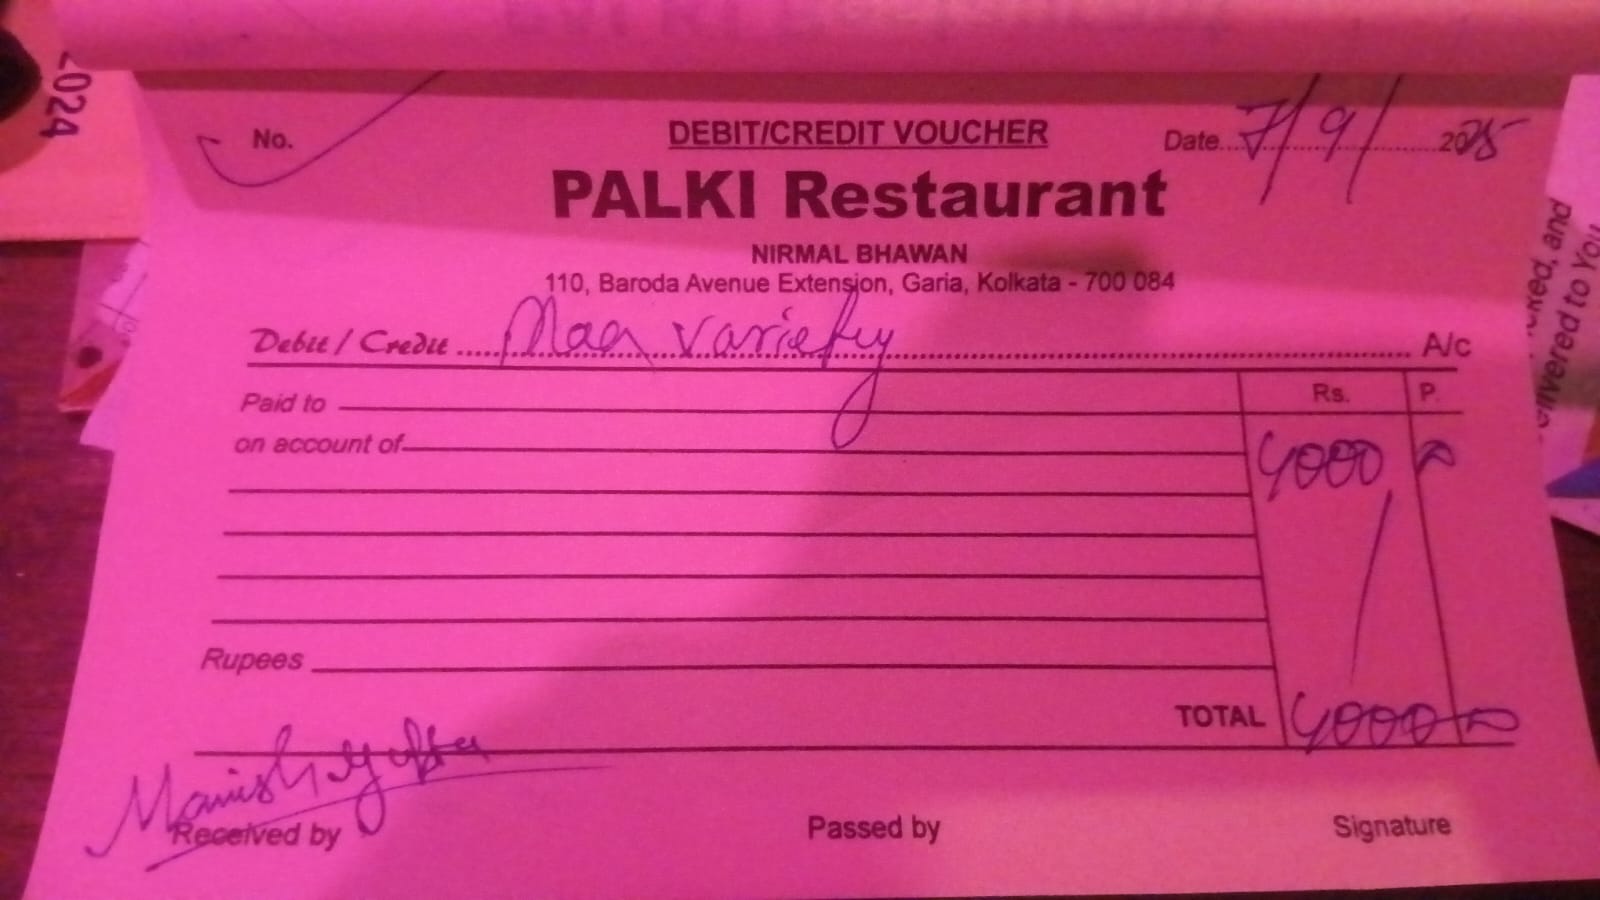 2024
No.
DEBIT/CREDIT VOUCHER
Date 7/9/ 2025
PALKI Restaurant
NIRMAL BHAWAN
110, Baroda Avenue Extension, Garia, Kolkata - 700 084
Debit / Credit Maa variety A/c
Rs. P.
Paid to
on account of 4000
Rupees
TOTAL 4000
Manish Gupta
Received by
Passed by
Signature
and
delivered to You